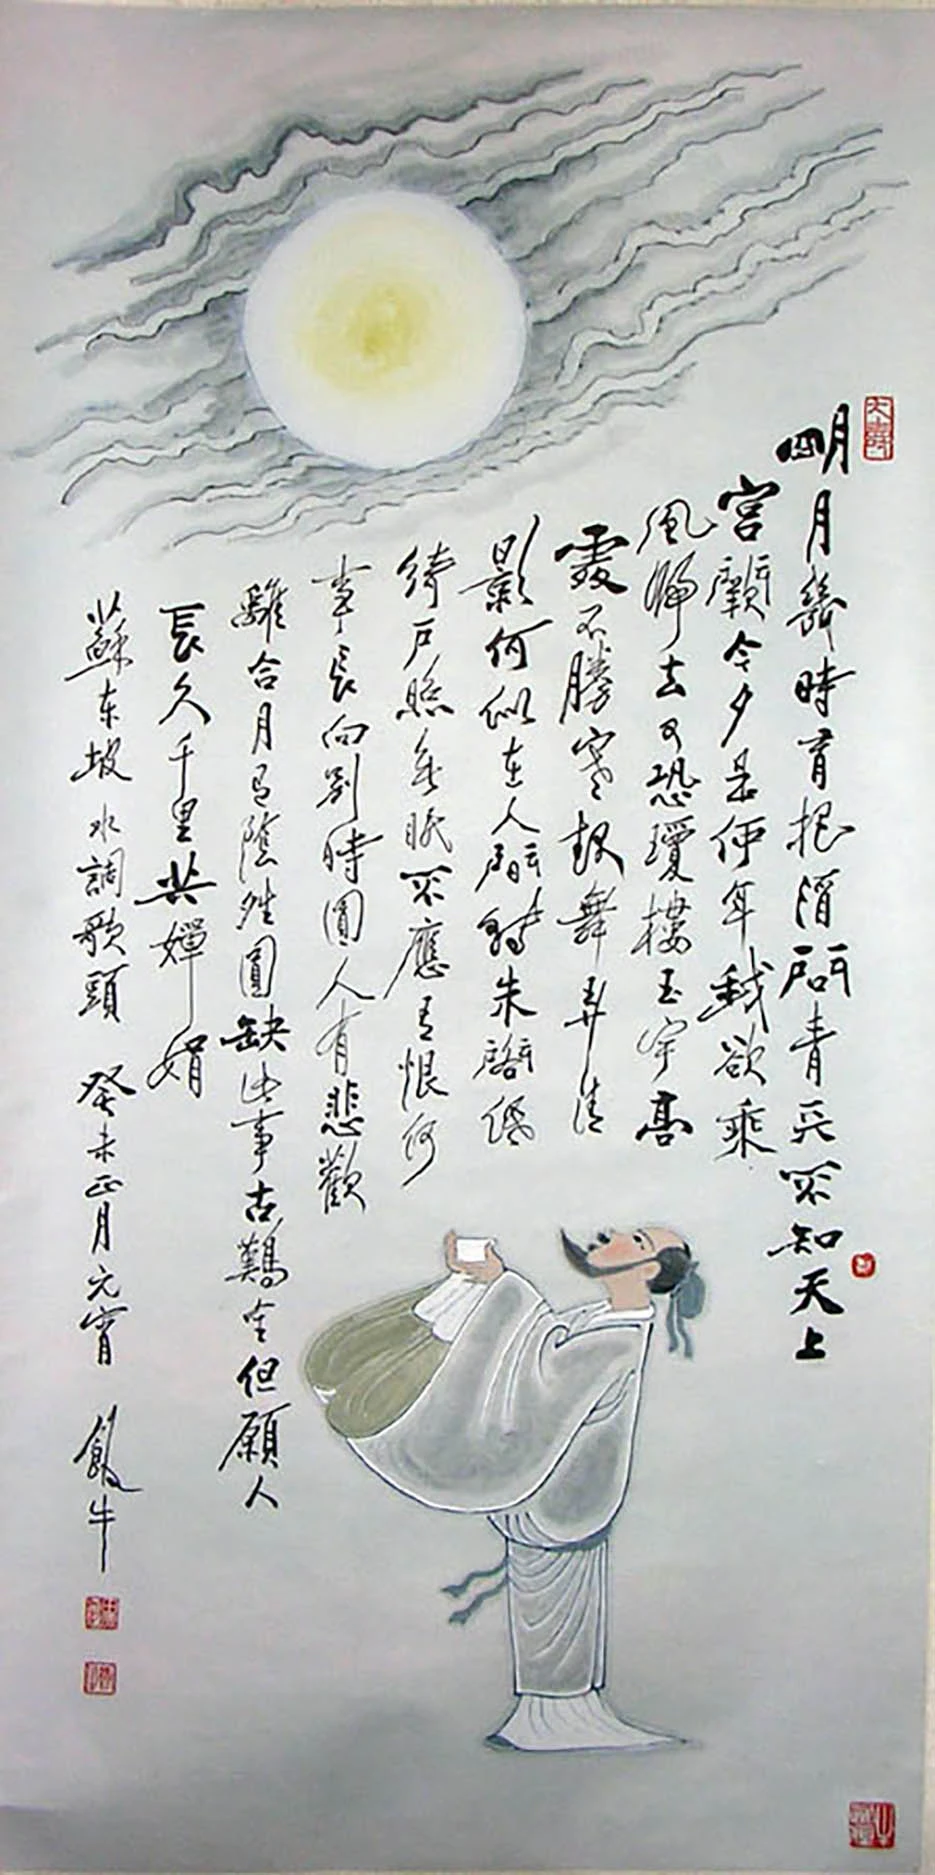 明月幾時有把酒問青天不知天上
宮闕今夕是何年我欲乘
風歸去又恐瓊樓玉宇高
處不勝寒起舞弄清
影何似在人間轉朱閣低
綺戶照無眠不應有恨何
事長向別時圓人有悲歡
離合月有陰晴圓缺此事古難全但願人
長久千里共嬋娟
蘇東坡 水調歌頭 癸未正月元宵 飯牛